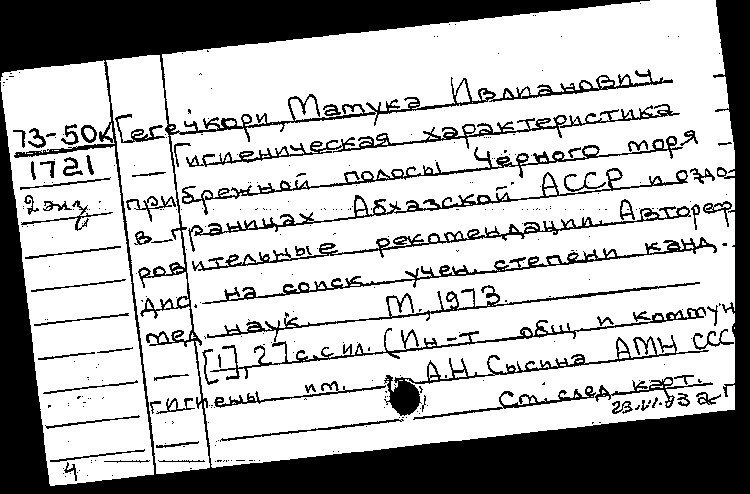 73-50к Гегечкори, Матука Ивлианович.
1721 Гигиеническая характеристика
2 экз. прибрежной полосы Чёрного моря
в границах Абхазской АССР и оздо-
ровительные рекомендации. Автореф.
дис. на соиск. учен. степени канд.
мед. наук. М., 1973.
[1], 27 с. с ил. (Ин-т общ. и коммун.
гигиены им. А.Н. Сысина АМН СССР
См. след. карт.
4